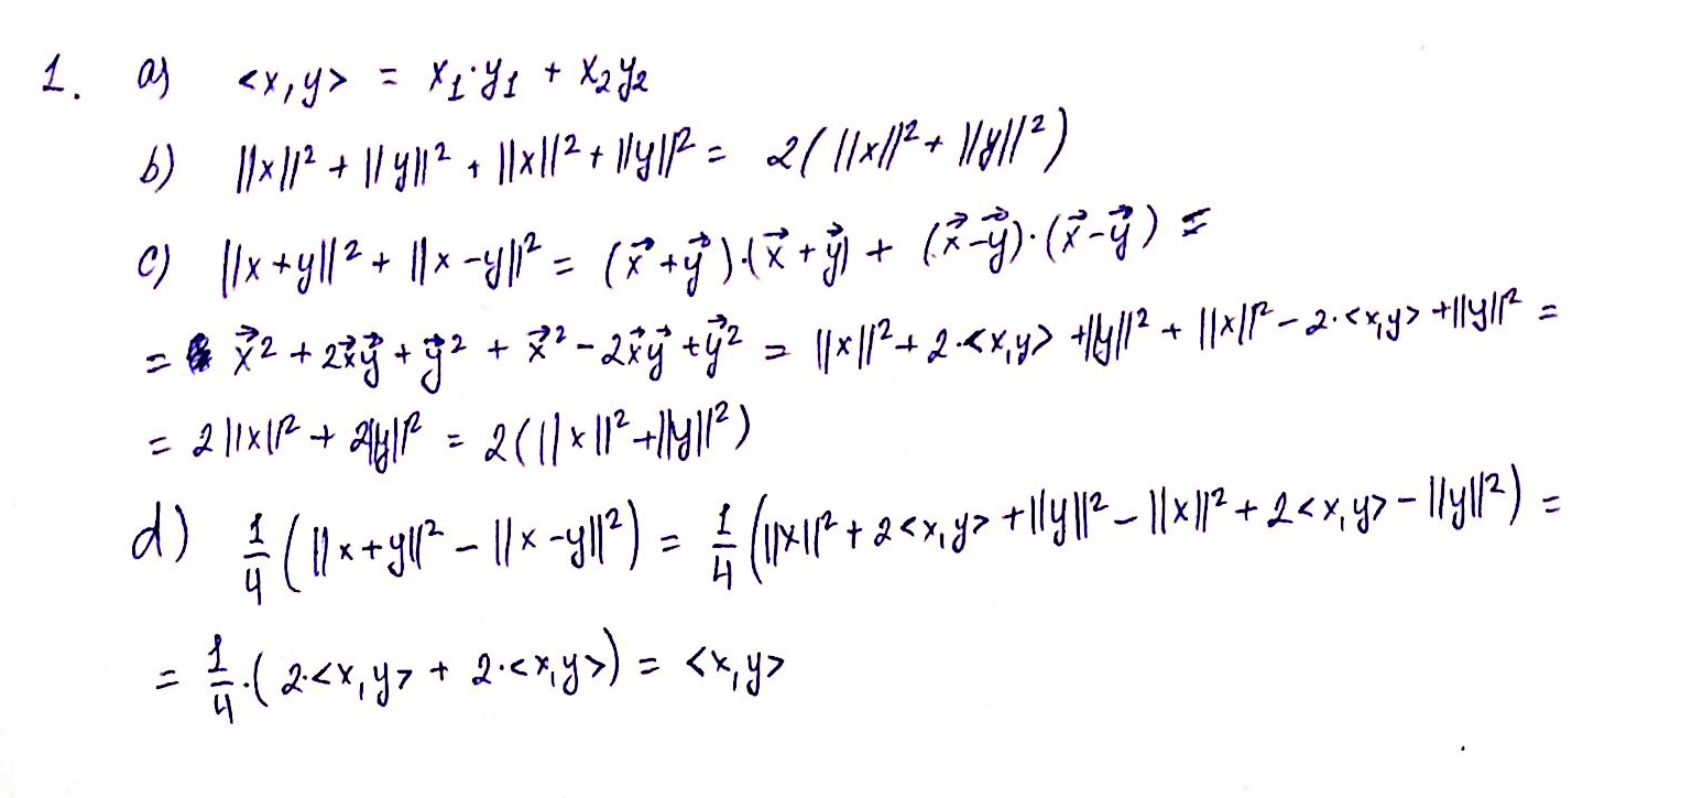 1. a) <x,y> = x₁·y₁ + x₂y₂
b) ||x||² + ||y||² + ||x||² + ||y||² = 2(||x||² + ||y||²)
c) ||x+y||² + ||x-y||² = (x⃗+y⃗)·(x⃗+y⃗) + (x⃗-y⃗)·(x⃗-y⃗) =
= x⃗² + 2x⃗y⃗ + y⃗² + x⃗² - 2x⃗y⃗ + y⃗² = ||x||² + 2·<x,y> + ||y||² + ||x||² - 2·<x,y> + ||y||² =
= 2||x||² + 2||y||² = 2(||x||² + ||y||²)
d) 1/4 (||x+y||² - ||x-y||²) = 1/4 (||x||² + 2<x,y> + ||y||² - ||x||² + 2<x,y> - ||y||²) =
= 1/4·(2·<x,y> + 2·<x,y>) = <x,y>